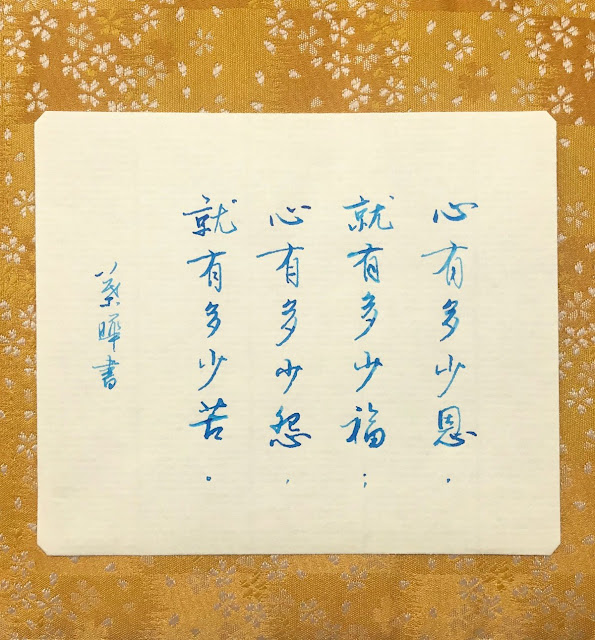 心有多少恩，
就有多少福；
心有多少怨，
就有多少苦。
葉曄書